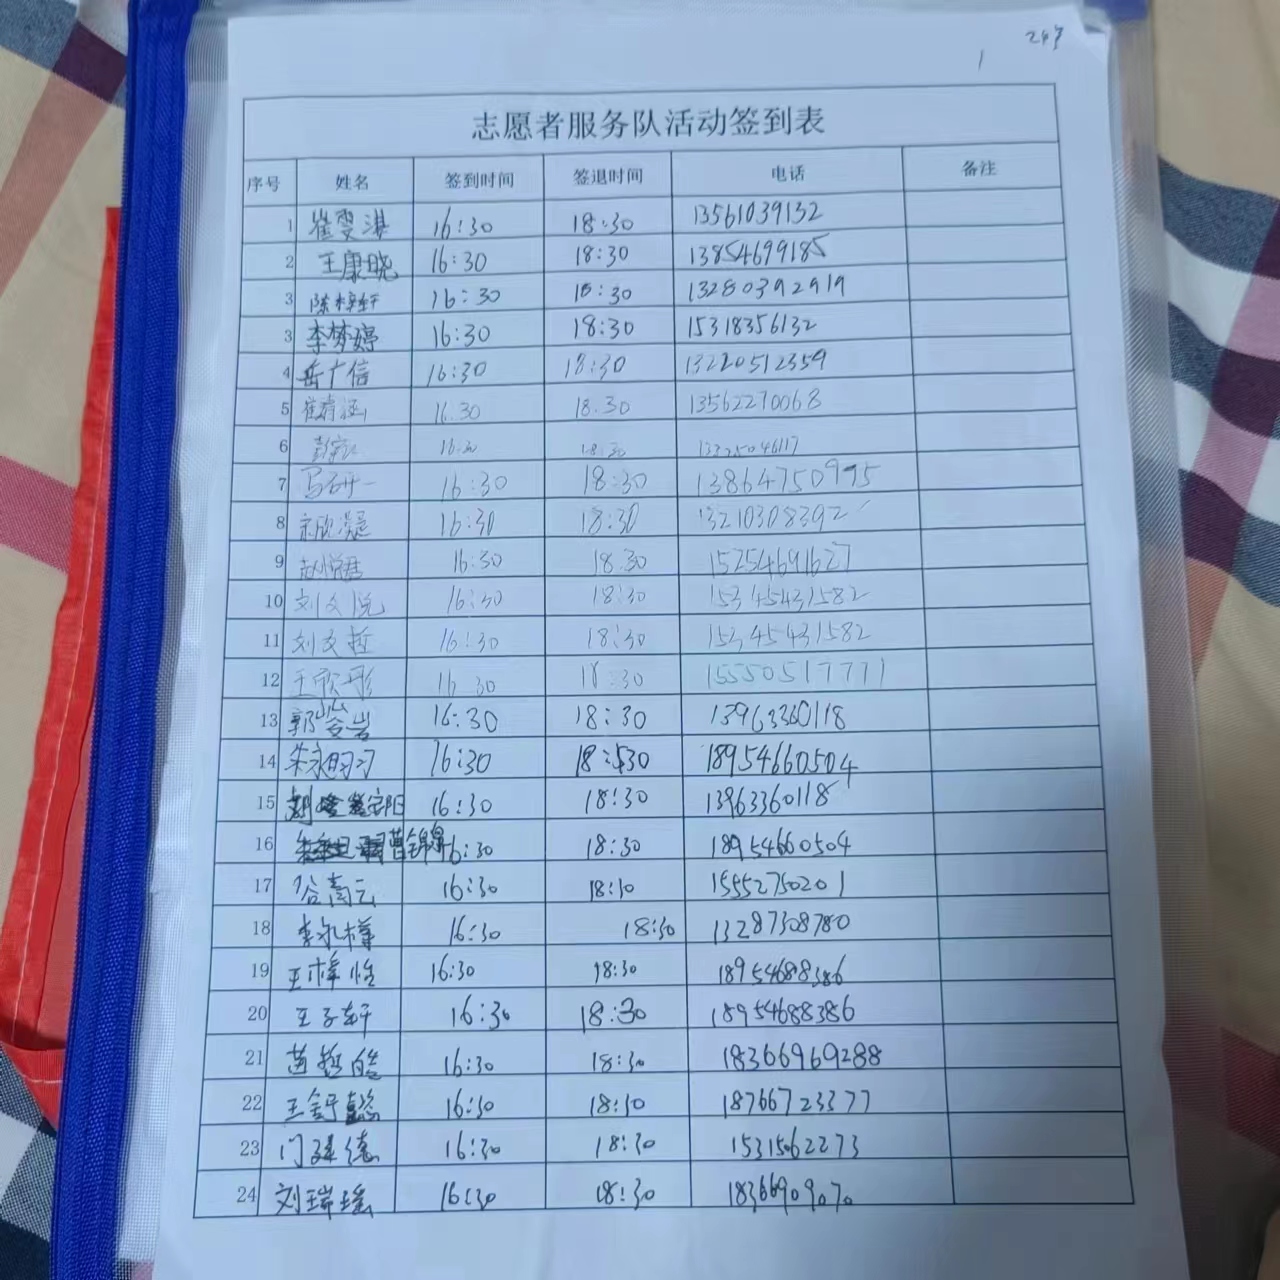 1
志愿者服务队活动签到表
序号 姓名 签到时间 签退时间 电话 备注
1 崔雯淇 16:30 18:30 13561039132
2 王康晓 16:30 18:30 13854699185
3 陈梓轩 16:30 18:30 13280392919
3 李梦婷 16:30 18:30 15318356132
4 岳广信 16:30 18:30 13220512359
5 16.30 18.30 13562270068
6 16:30 18:30
7 马研一 16:30 18:30 13864750995
8 16:30 18:30 13210308392
9 赵悦君 16:30 18.30 15254691627
10 刘文悦 16:30 18:30 15345431582
11 刘文哲 16:30 18:30 15345431582
12 王欣彤 16 30 18:30 15550517771
13 16:30 18:30 13963360118
14 朱永明 16:30 18:30 18954660504
15 16:30 18:30 13963360118
16 曹锦 16:30 18:30 18954660504
17 谷高云 16:30 18:30 15552750201
18 李永樟 16:30 18:30 13287308780
19 王梓怡 16:30 18:30 18954688386
20 王子轩 16:30 18:30 18954688386
21 16:30 18:30 18366969288
22 王舒懿 16:30 18:30 18766723377
23 16:30 18:30 15315062273
24 刘瑞瑶 16:30 18:30 18366909070